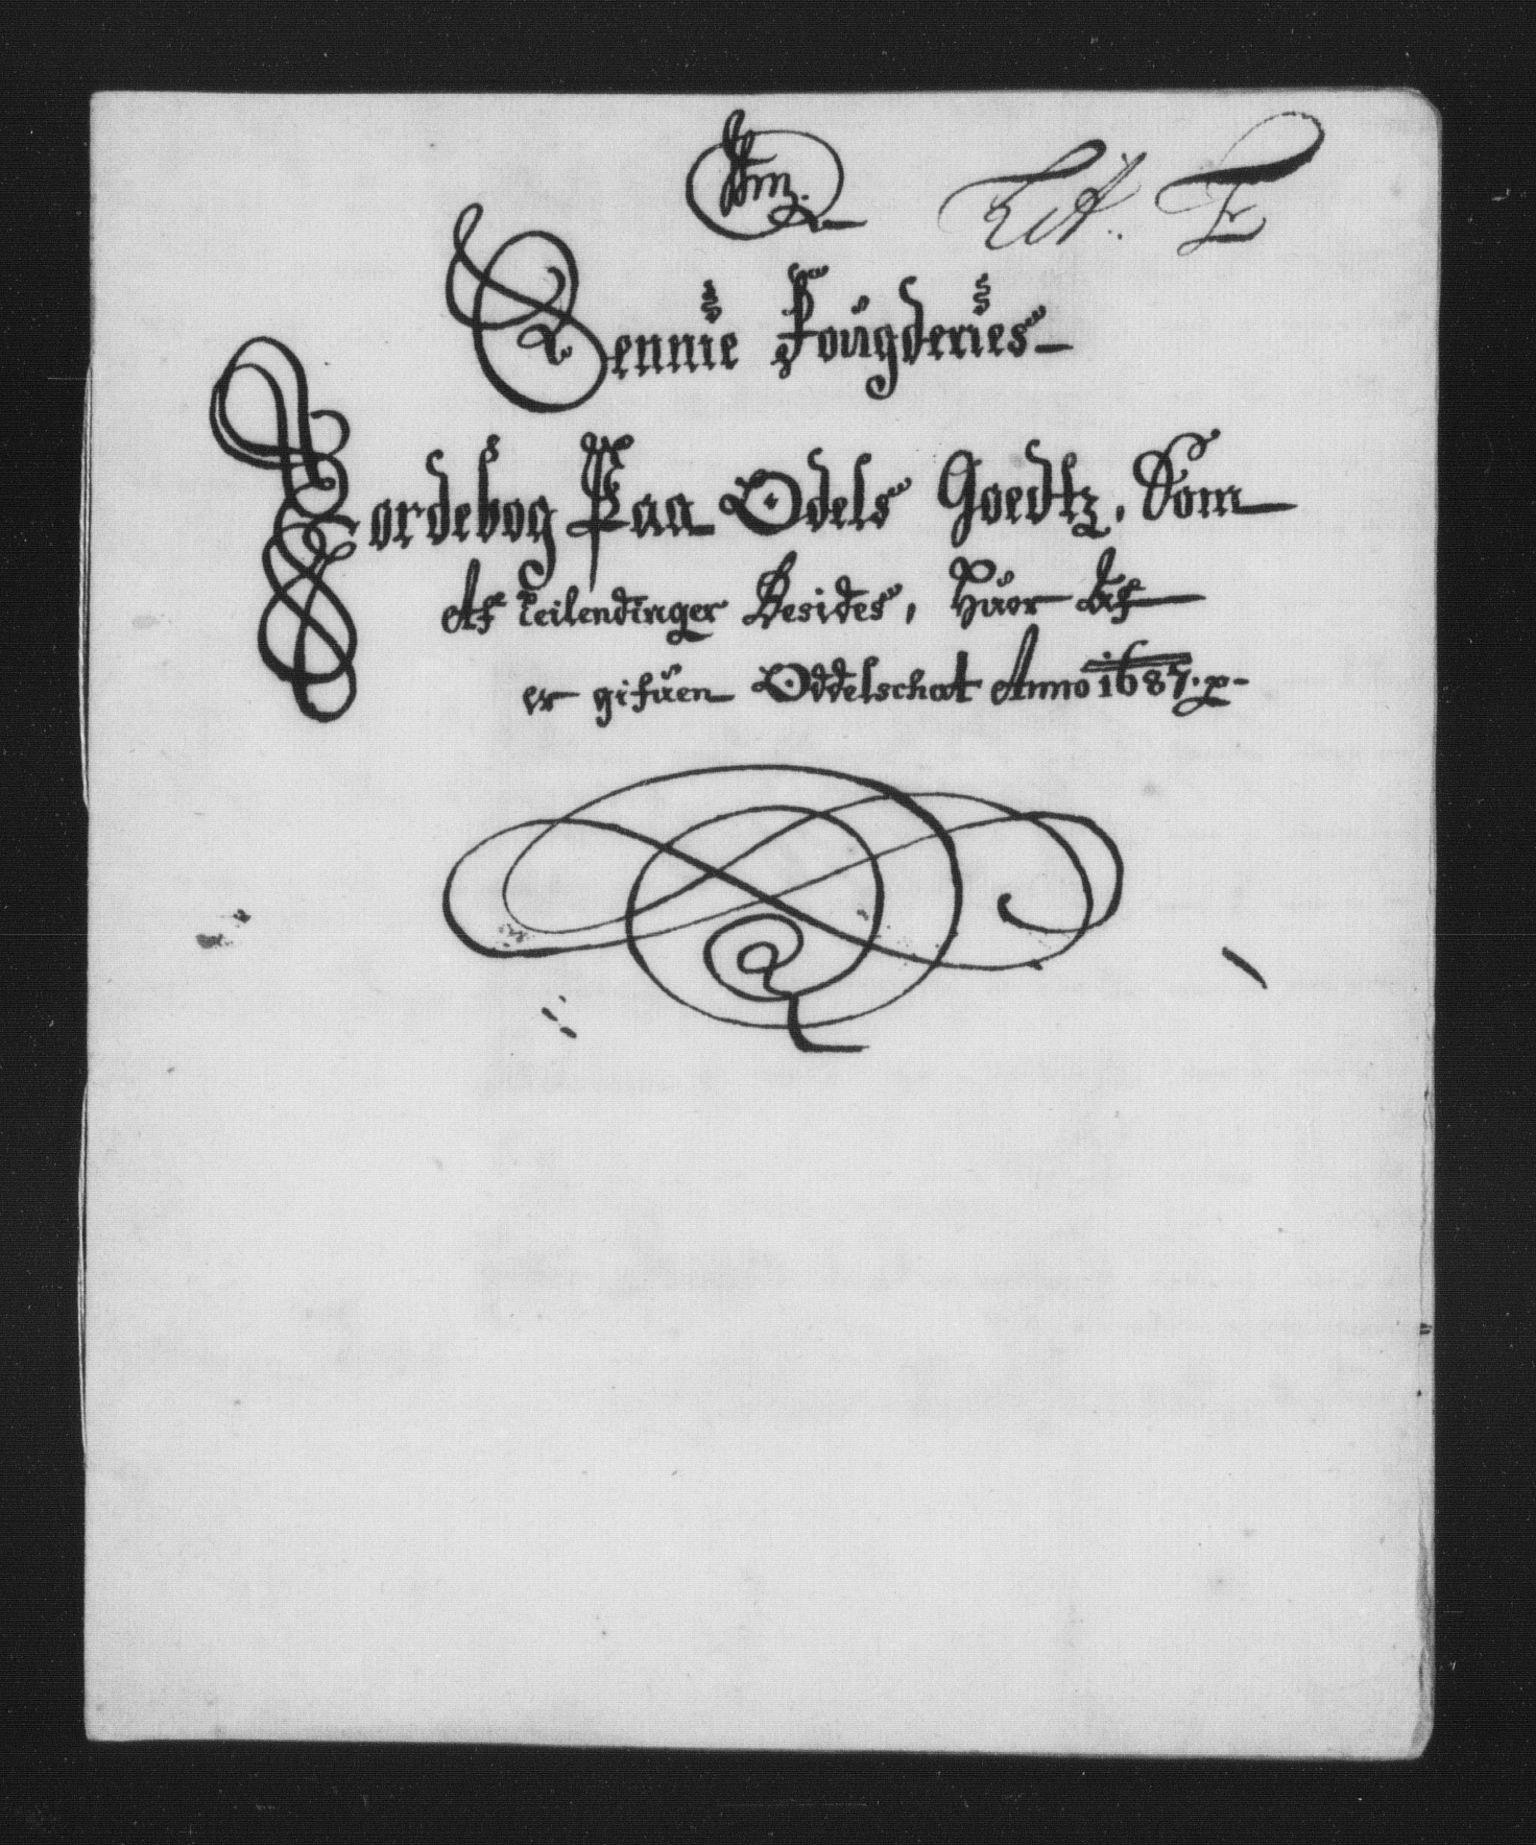 Lit. F
Sennie Fougderies
Jordebog Paa Odels Goedtz, Som
Af Leilendinger Besides, Huor Af
er gifuen Oddelschat Anno 1687.